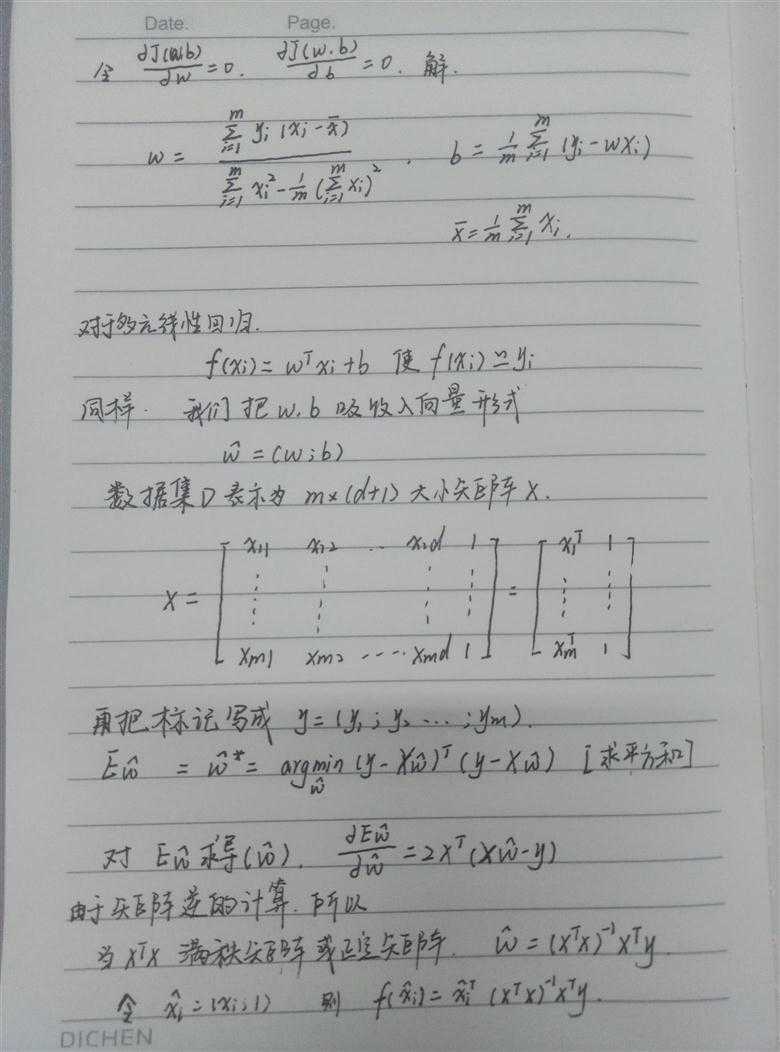 Date. Page.
令 ∂J(w,b)/∂w = 0. ∂J(w,b)/∂b = 0. 解.
w = \frac{\sum_{i=1}^{m} y_i (x_i - \bar{x})}{\sum_{i=1}^{m} x_i^2 - \frac{1}{m} (\sum_{i=1}^{m} x_i)^2} . b = \frac{1}{m} \sum_{i=1}^{m} (y_i - wx_i)
\bar{x} = \frac{1}{m} \sum_{i=1}^{m} x_i.
对于多元线性回归.
f(x_i) = w^T x_i + b 使 f(x_i) ≌ y_i
同样. 我们把 w.b 吸收入向量形式
ŵ = (w;b)
数据集D表示为 m×(d+1) 大小矩阵 X.
X = [ x_{11} x_{12} ... x_{1d} 1 ; ⋮ ⋮ ⋮ ⋮ ; x_{m1} x_{m2} ···· x_{md} 1 ] = [ x_1^T 1 ; ⋮ ⋮ ; x_m^T 1 ]
再把标记写成 y = (y_1; y_2 ...; y_m).
Eŵ = ŵ* = argmin_ŵ (y - Xŵ)^T (y - Xŵ) [求平方和]
对 Eŵ 求导(ŵ). ∂Eŵ/∂ŵ = 2X^T (Xŵ - y)
由于矩阵逆的计算. 所以
当 X^TX 满秩矩阵或正定矩阵. ŵ = (X^TX)^{-1} X^T y
令 \hat{x}_i = (x_i; 1) 则 f(\hat{x}_i) = \hat{x}_i^T (X^TX)^{-1} X^T y.
DICHEN